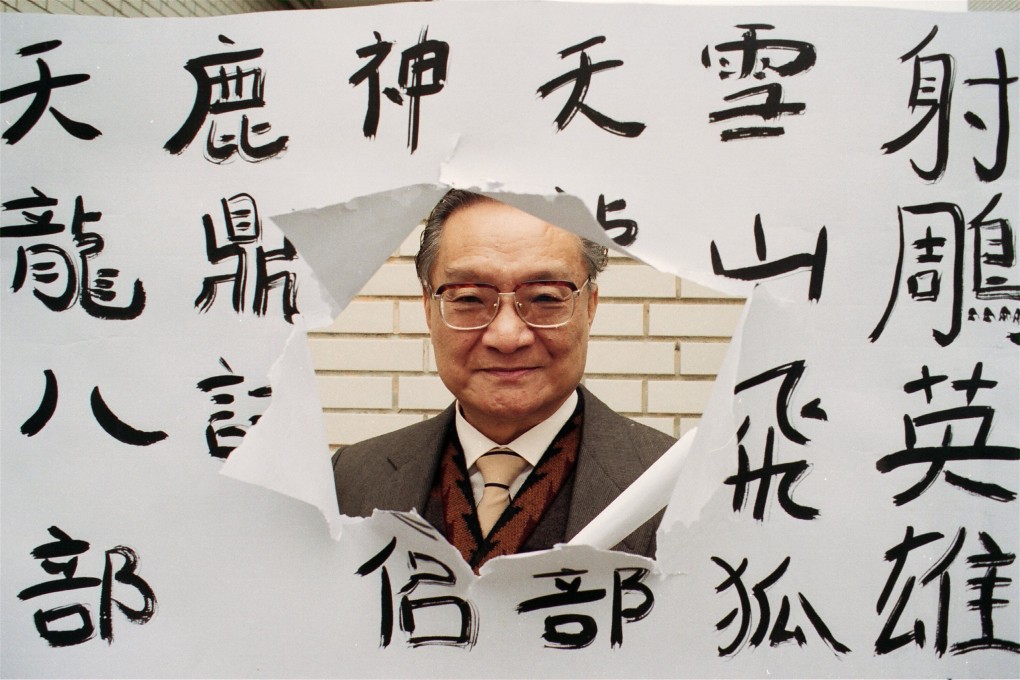 射鵰英雄
雪山飛狐
天部
神侶
鹿鼎記
天龍八部